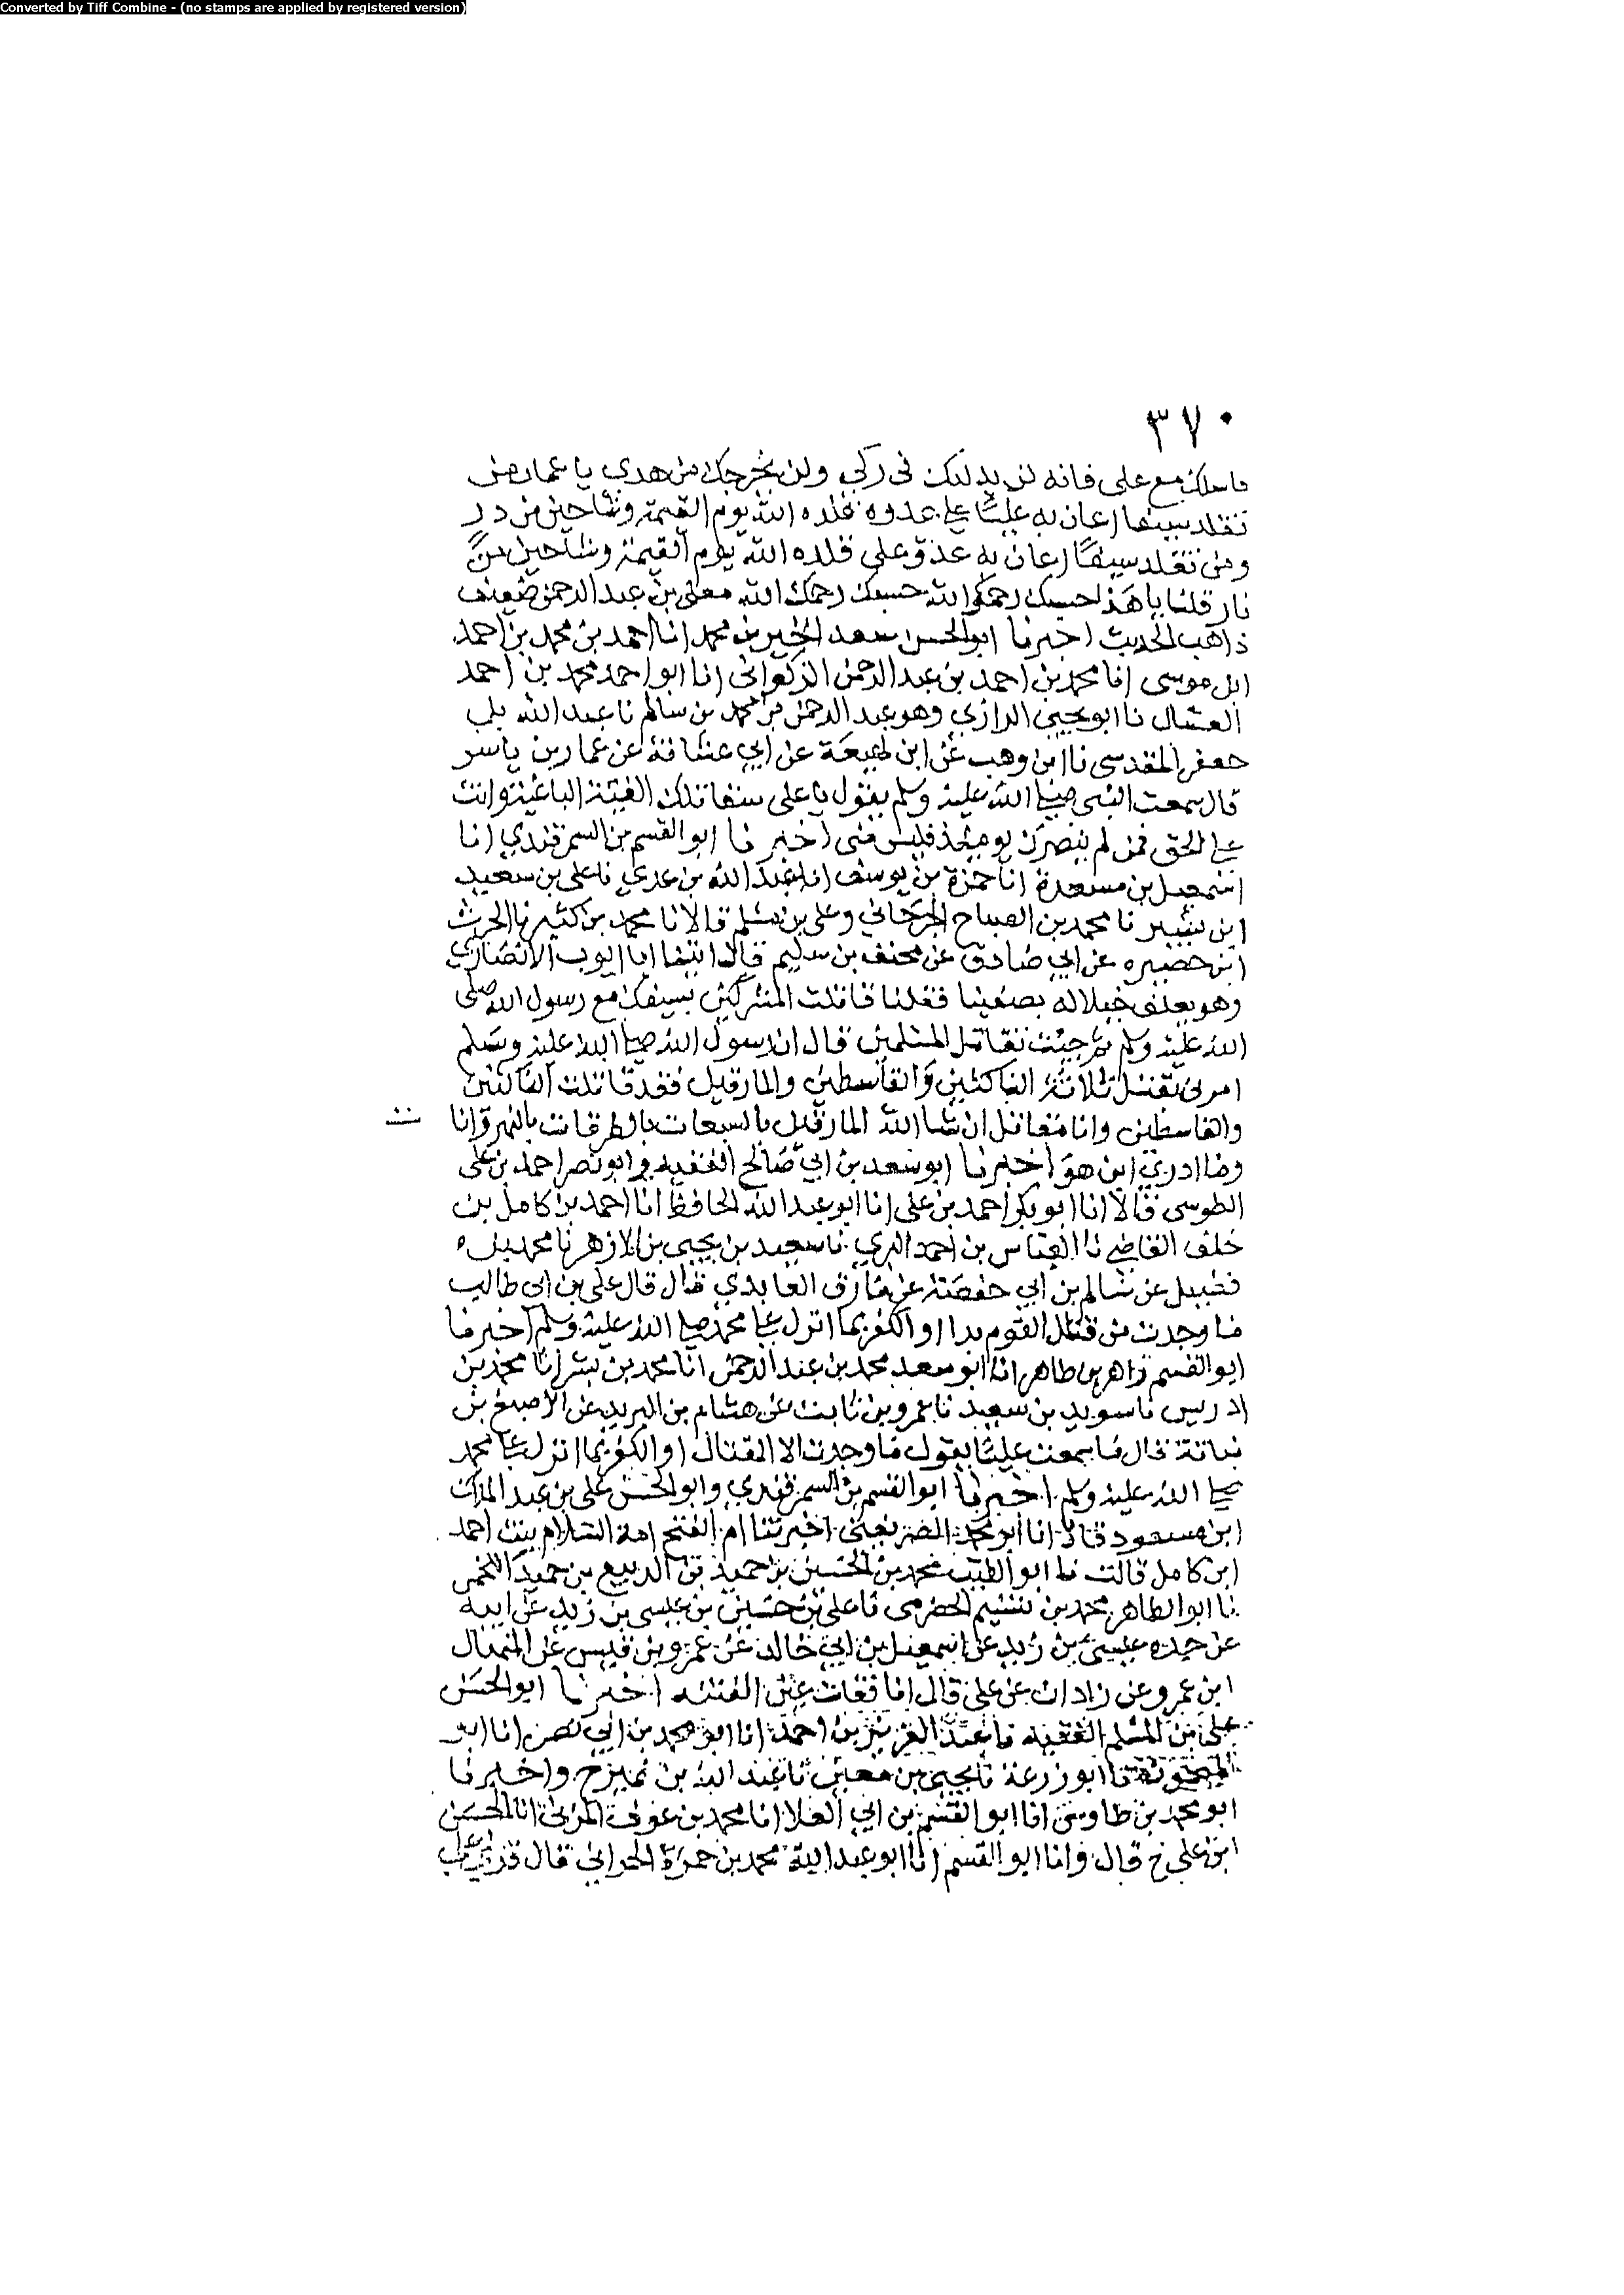 Converted by Tiff Combine - (no stamps are applied by registered version)
٣٧٠
فاسلك مع علي فانه لن يدليك في ركي ولن يخرجك من هدي يا عمار من
تقلد سيفا اعان به عليا على عدوه قلده الله يوم القيمة وشاحين من در
ومن تقلد سيفا اعان به عدو علي قلده الله يوم القيمة وشاحين من
نار قلنا يا هذا حسبك رحمك الله حسبك رحمك الله معلى بن عبد الرحمن ضعيف
ذاهب الحديث اخبرنا ابو الحسن سعد الخير بن محمد انا احمد بن محمد بن احمد
ابن موسى انا محمد بن احمد بن عبد الرحمن الذكواني انا ابو احمد محمد بن احمد
العسال نا ابو يحيى الرازي وهو عبد الرحمن بن محمد بن سالم نا عبد الله بن
جعفر المقدسي نا ابن وهب عن ابن لهيعة عن ابي عشانة عن عمار بن ياسر
قال سمعت النبي صلى الله عليه وسلم يقول يا علي ستقاتلك الفئة الباغية وانت
على الحق فمن لم ينصرك يومئذ فليس مني اخبرنا ابو القسم بن السمرقندي انا
اسمعيل بن مسعدة انا حمزة بن يوسف انا عبد الله بن عدي نا علي بن سعيد
ابن بشير نا محمد بن الصباح الجرجاني وعلي بن مسلم قالا نا محمد بن كثير نا الحرث
ابن حصيره عن ابي صادق عن مخنف بن سليم قال اتينا ابا ايوب الانصاري
وهو يعلف خيلا له بصفينا فقلنا قاتلت المشركين بسيفك مع رسول الله صلى
الله عليه وسلم ثم جيت تقاتل المسلمين قال ان رسول الله صلى الله عليه وسلم
امرني بقتل ثلاثة الناكثين والقاسطين والمارقين فقد قاتلت الناكثين
والقاسطين وانا مقاتل ان شا الله المارقين بالسعفات بالطرقات بالنهروانات
وما ادري اين هو اخبرنا ابو سعد بن ابي صالح الفقيه وابو نصر احمد بن علي
الطوسي قالا انا ابو بكر احمد بن علي انا ابو عبد الله الحافظ انا احمد بن كامل بن
خلف القاضي نا العباس بن احمد البري نا سعيد بن يحيى بن الازهر نا محمد بن
فضيل عن سالم بن ابي حفصة عن مازن العابدي قال قال علي بن ابي طالب
ما وجدت من قتال القوم بدا او الكفر بما انزل على محمد صلى الله عليه وسلم اخبرنا
ابو القسم زاهر بن طاهر انا ابو سعد محمد بن عبد الرحمن انا محمد بن بشر انا محمد بن
ادريس نا سويد بن سعيد نا عمرو بن ثابت عن هشام بن البريد عن الاصبغ بن
نباتة قال سمعت عليا يقول ما وجدت الا القتال او الكفر بما انزل على محمد
صلى الله عليه وسلم اخبرنا ابو القسم بن السمرقندي وابو الحسن علي بن عبد الملك
ابن مسعود قالا انا ابو محمد الصريفيني اخبرتنا ام الفتح امة السلام بنت احمد
ابن كامل قالت نا ابو الطيب محمد بن الحسين بن حميد بن الربيع بن حميد اللخمي
نا ابو الطاهر محمد بن تسنيم الحضرمي نا علي بن حسين بن عيسى بن زيد عن ابيه
عن جده عيسى بن زيد عن اسمعيل بن ابي خالد عن عمرو بن قيس عن المنهال
ابن عمرو عن زاذان عن علي قال انا فقات عين الفتنه اخبرنا ابو الحسن
علي بن المسلم الفقيه نا عبد العزيز بن احمد انا ابو محمد بن ابي نصر انا ابو
الميمون نا ابو زرعة نا يحيى بن معين نا عبد الله بن نمير ح واخبرنا
ابو محمد بن طاوس انا ابو القسم بن ابي العلا انا محمد بن عوف المزني انا الحسن
ابن علي ح قال وانا ابو القسم انا ابو عبد الله محمد بن حمزة الحراني قال قري على